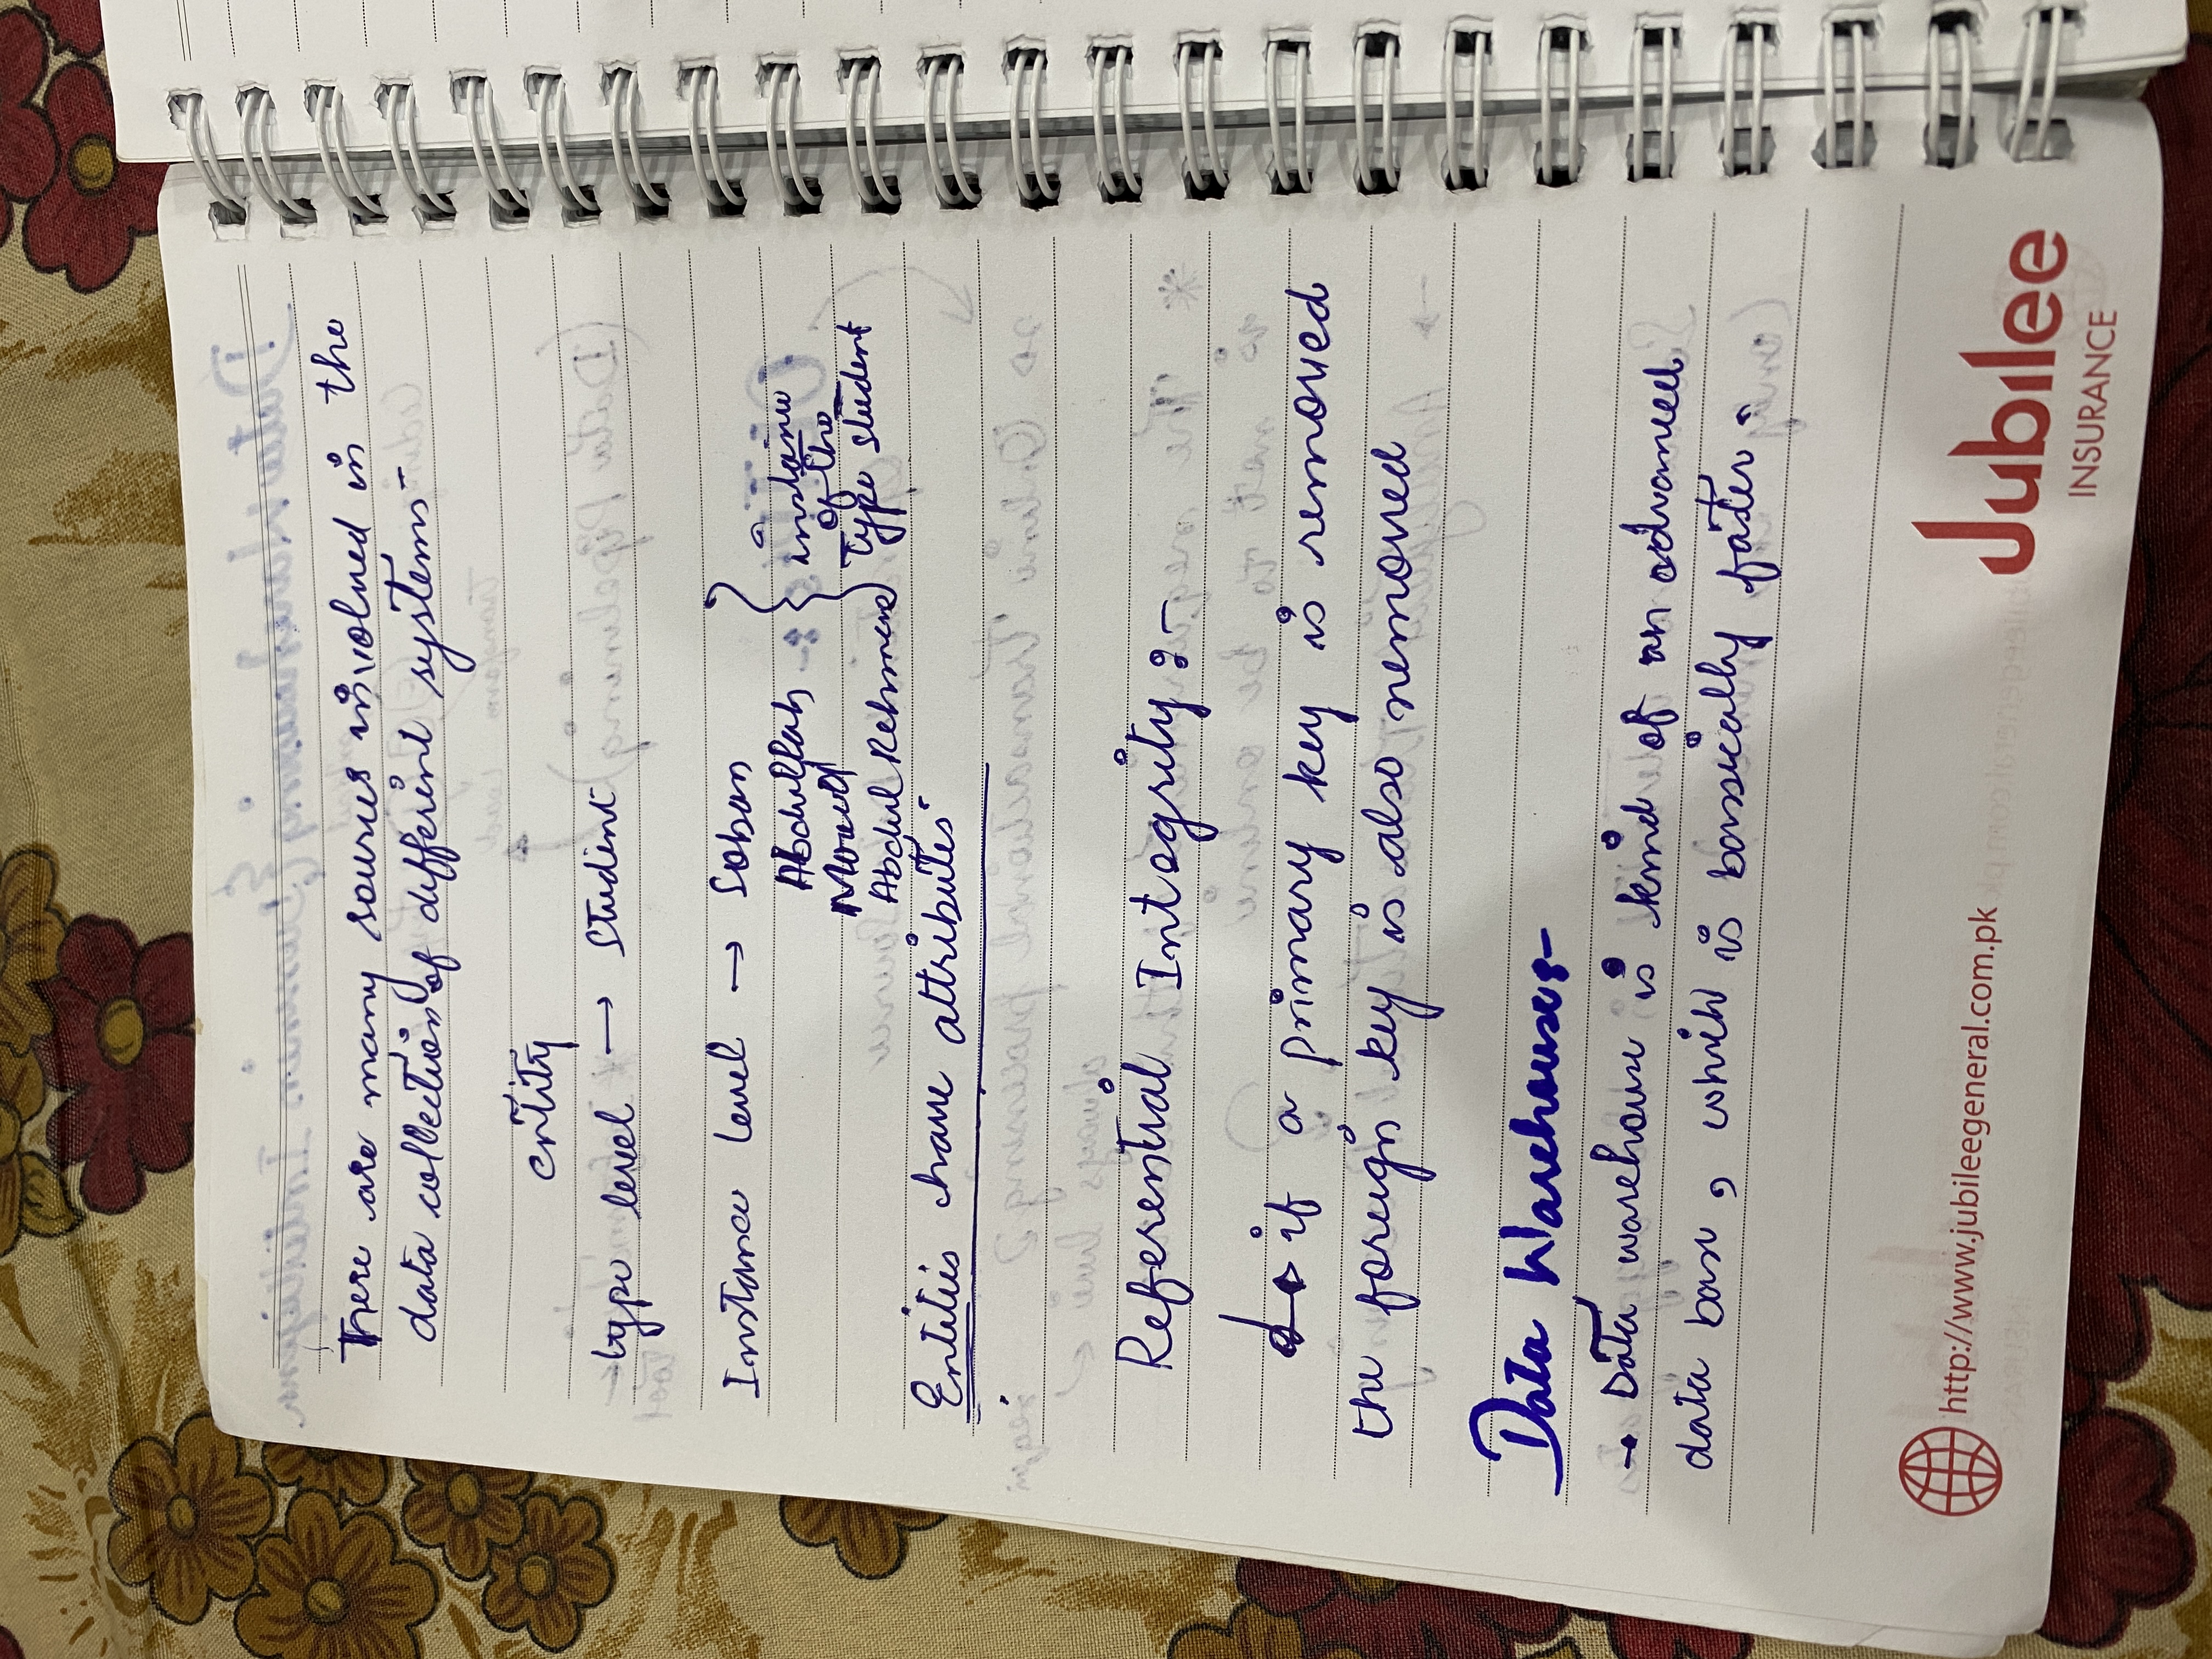 There are many sources involved in the
data collection of different systems
entity
type level → Student
Instance level → Soban
Abdullah
Abdul Rehman
instance
of the
type student
Entities have attributes
Referential Integrity :-
if a primary key is removed
the foreign key is also removed
Data Warehouse:-
→ Data warehouse is kind of an advanced
data base, which is bassically faster.
http://www.jubileegeneral.com.pk
Jubilee
INSURANCE